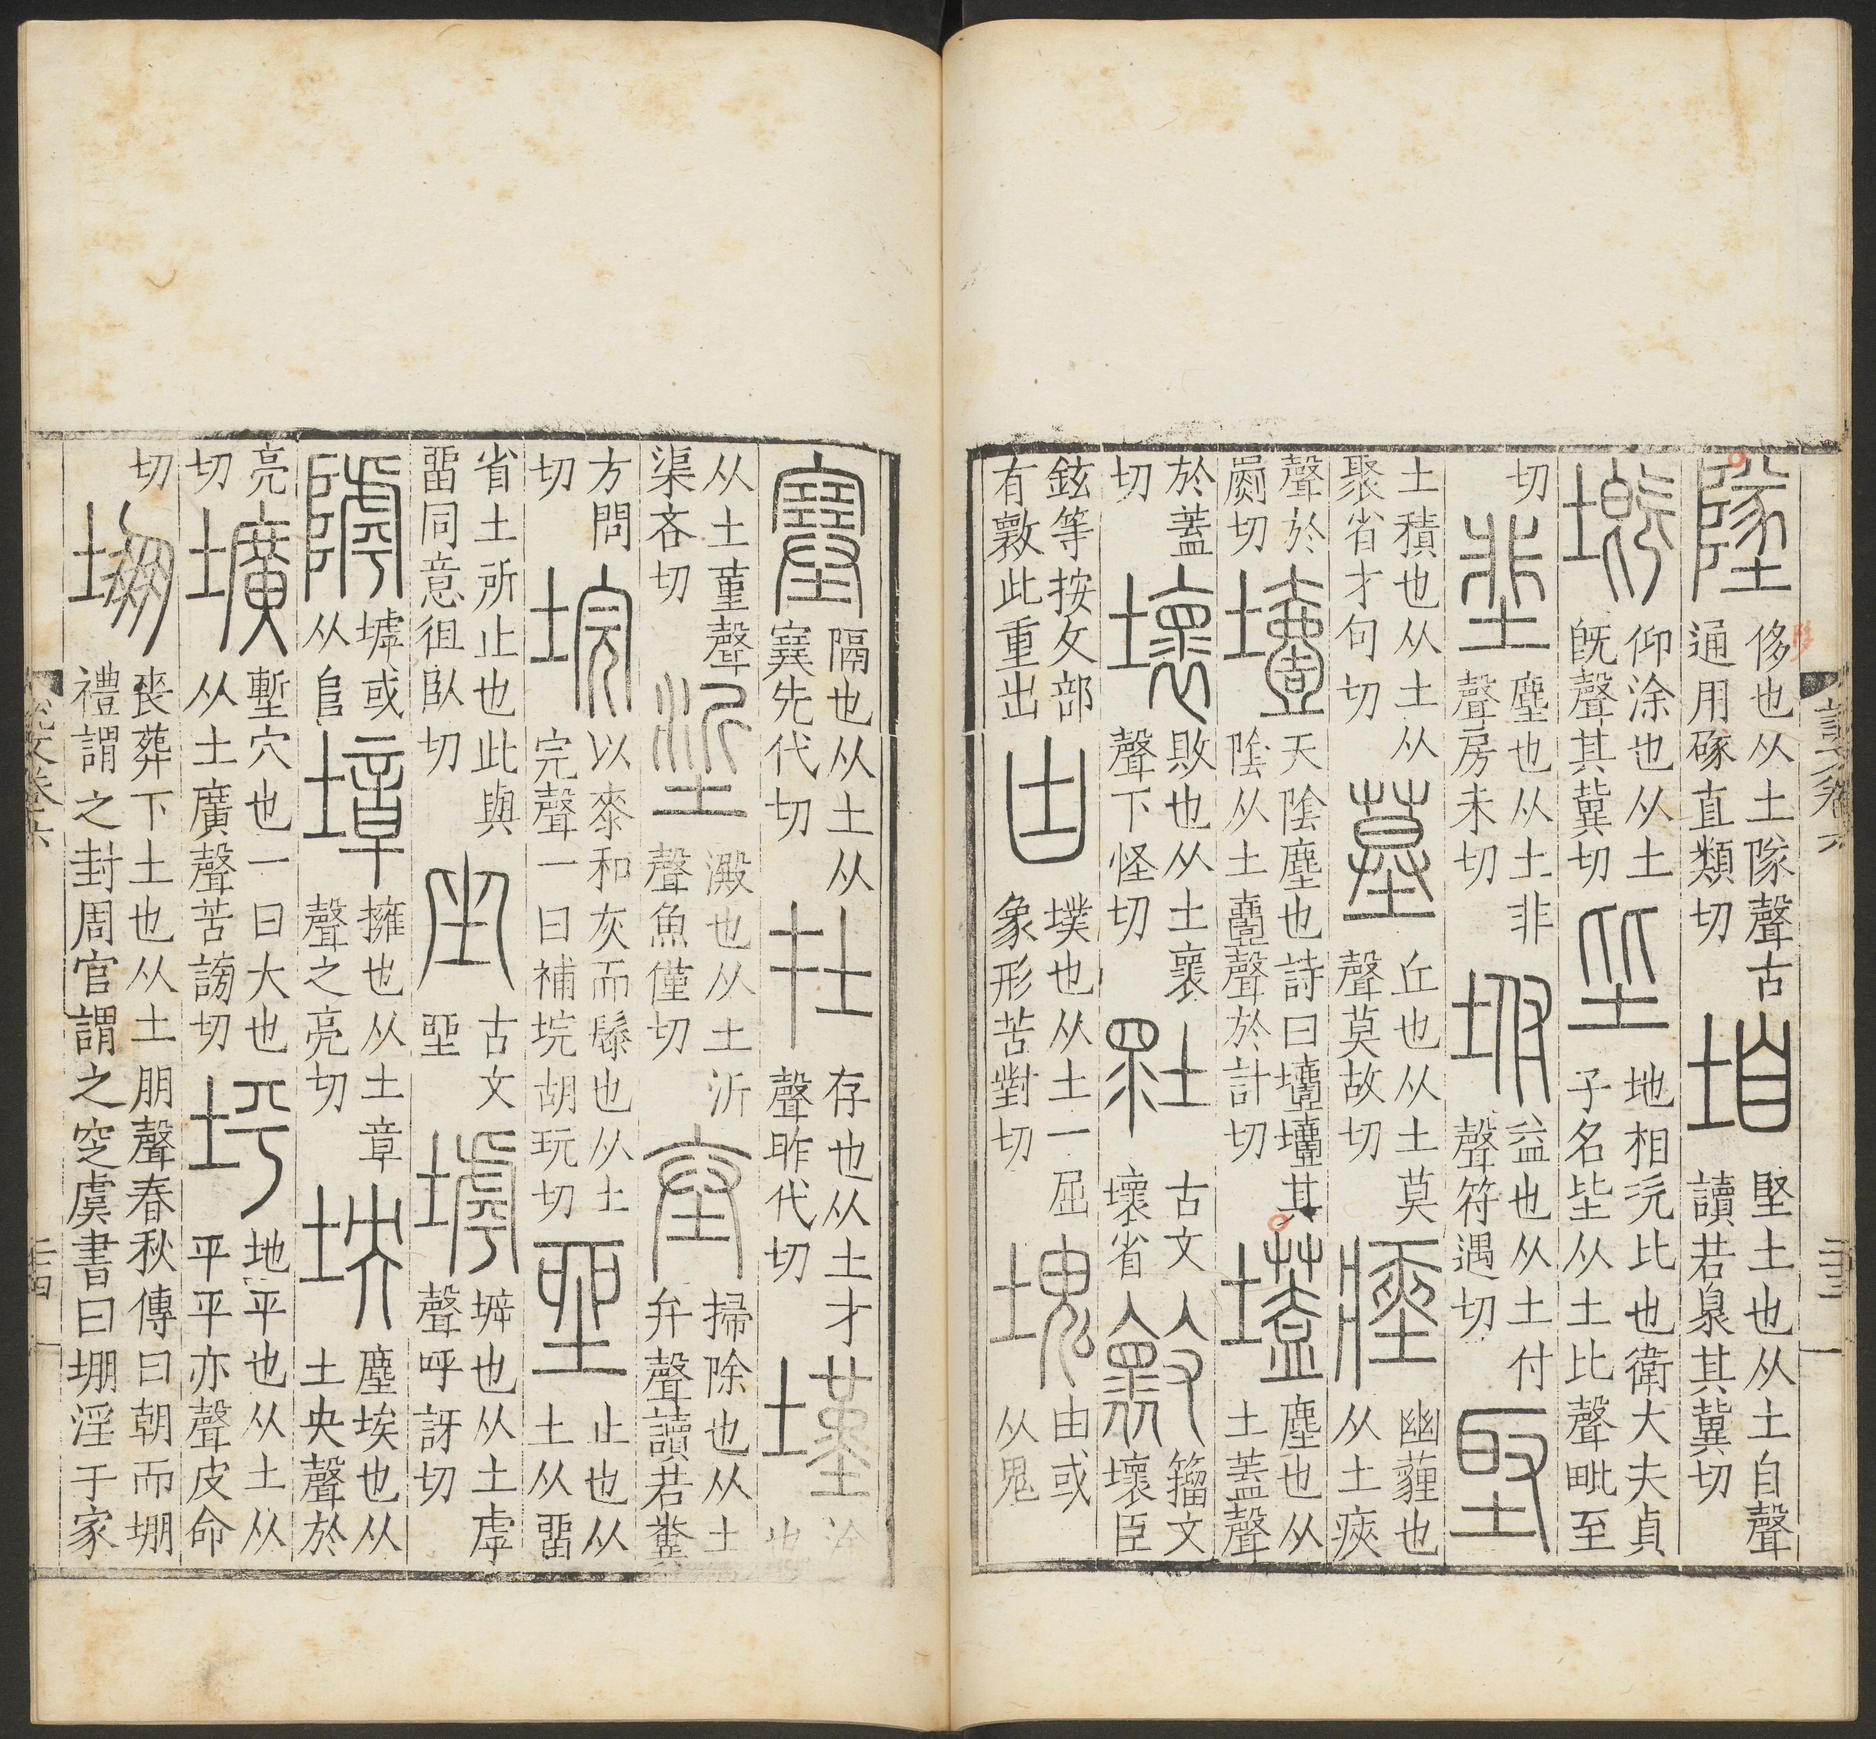 墜侈也从土隊聲古通用䃍直類切垍堅土也从土自聲讀若臮其冀切
塈仰涂也从土旣聲其冀切坒地相次比也衛大夫貞子名坒从土比聲毗至
切𡋂塵也从土非聲房未切坿益也从土付聲符遇切埾
土積也从土从聚省才句切墓丘也从土莫聲莫故切瘞幽薶也从土㾜
聲於罽切𡑞天陰塵也詩曰𡑞𡑞其陰从土壹聲於計切壒塵也从土蓋聲
於蓋切壞敗也从土褱聲下怪切古文壞省籒文壞臣
鉉等按攵部有𣀩此重出凷墣也从土一屈象形苦對切塊凷或从鬼
說文卷六
二十三
塞隔也从土从𡫳先代切在存也从土才聲昨代切墐涂也
从土堇聲渠吝切垽澱也从土沂聲魚僅切𡊅掃除也从土弁聲讀若糞
方問切垸以桼和灰而髹也从土完聲一曰補垸胡玩切坐止也从土从畱
省土所止也此與畱同意徂臥切坐古文坐㙤㙤也从土虖聲呼訝切
㙤或从𨸏墇擁也从土章聲之亮切坱塵埃也从土央聲於
亮切壙塹穴也一曰大也从土廣聲苦謗切坪地平也从土从平平亦聲皮命
切堋喪葬下土也从土朋聲春秋傳曰朝而堋禮謂之封周官謂之窆虞書曰堋淫于家
說文卷六
二十四